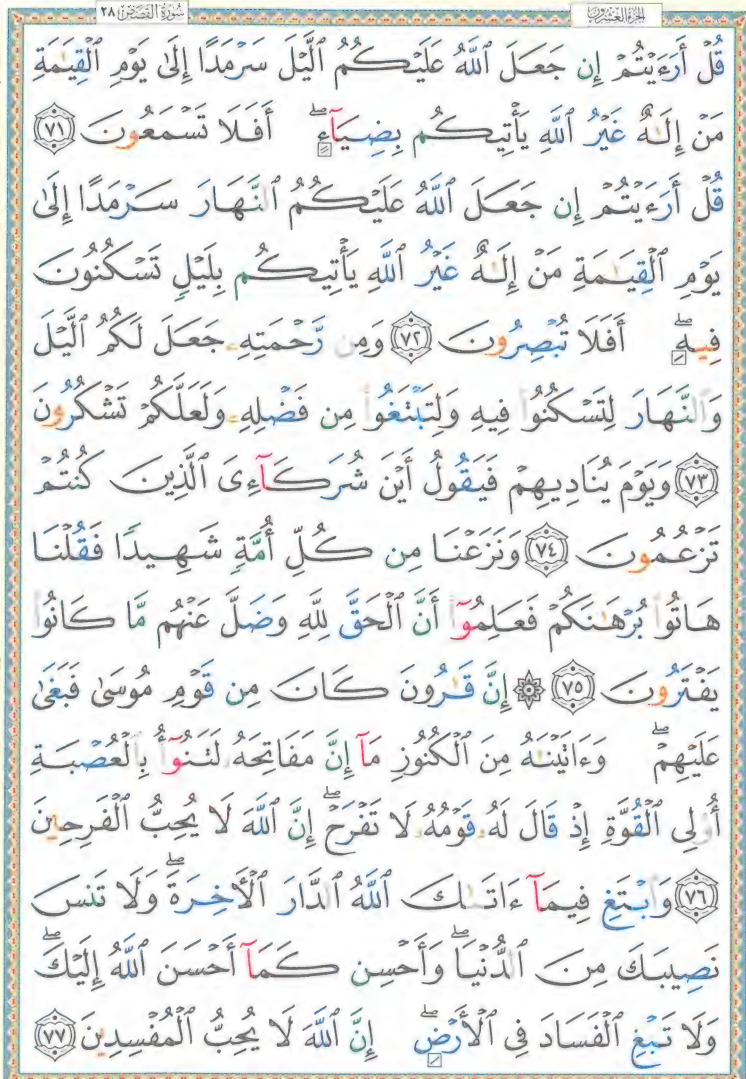 سُورَةُ القَصَصِ ٢٨
الجزء العشرون
قُلْ أَرَءَيْتُمْ إِن جَعَلَ ٱللَّهُ عَلَيْكُمُ ٱلَّيْلَ سَرْمَدًا إِلَىٰ يَوْمِ ٱلْقِيَـٰمَةِ
مَنْ إِلَـٰهٌ غَيْرُ ٱللَّهِ يَأْتِيكُم بِضِيَآءٍ ۖ أَفَلَا تَسْمَعُونَ ﴿٧١﴾
قُلْ أَرَءَيْتُمْ إِن جَعَلَ ٱللَّهُ عَلَيْكُمُ ٱلنَّهَارَ سَرْمَدًا إِلَىٰ
يَوْمِ ٱلْقِيَـٰمَةِ مَنْ إِلَـٰهٌ غَيْرُ ٱللَّهِ يَأْتِيكُم بِلَيْلٍ تَسْكُنُونَ
فِيهِ ۖ أَفَلَا تُبْصِرُونَ ﴿٧٢﴾ وَمِن رَّحْمَتِهِۦ جَعَلَ لَكُمُ ٱلَّيْلَ
وَٱلنَّهَارَ لِتَسْكُنُوا۟ فِيهِ وَلِتَبْتَغُوا۟ مِن فَضْلِهِۦ وَلَعَلَّكُمْ تَشْكُرُونَ
﴿٧٣﴾ وَيَوْمَ يُنَادِيهِمْ فَيَقُولُ أَيْنَ شُرَكَآءِىَ ٱلَّذِينَ كُنتُمْ
تَزْعُمُونَ ﴿٧٤﴾ وَنَزَعْنَا مِن كُلِّ أُمَّةٍ شَهِيدًا فَقُلْنَا
هَاتُوا۟ بُرْهَـٰنَكُمْ فَعَلِمُوٓا۟ أَنَّ ٱلْحَقَّ لِلَّهِ وَضَلَّ عَنْهُم مَّا كَانُوا۟
يَفْتَرُونَ ﴿٧٥﴾ ۞ إِنَّ قَـٰرُونَ كَانَ مِن قَوْمِ مُوسَىٰ فَبَغَىٰ
عَلَيْهِمْ ۖ وَءَاتَيْنَـٰهُ مِنَ ٱلْكُنُوزِ مَآ إِنَّ مَفَاتِحَهُۥ لَتَنُوٓأُ بِٱلْعُصْبَةِ
أُو۟لِى ٱلْقُوَّةِ إِذْ قَالَ لَهُۥ قَوْمُهُۥ لَا تَفْرَحْ ۖ إِنَّ ٱللَّهَ لَا يُحِبُّ ٱلْفَرِحِينَ
﴿٧٦﴾ وَٱبْتَغِ فِيمَآ ءَاتَىٰكَ ٱللَّهُ ٱلدَّارَ ٱلْـَٔاخِرَةَ ۖ وَلَا تَنسَ
نَصِيبَكَ مِنَ ٱلدُّنْيَا ۖ وَأَحْسِن كَمَآ أَحْسَنَ ٱللَّهُ إِلَيْكَ ۖ
وَلَا تَبْغِ ٱلْفَسَادَ فِى ٱلْأَرْضِ ۖ إِنَّ ٱللَّهَ لَا يُحِبُّ ٱلْمُفْسِدِينَ ﴿٧٧﴾